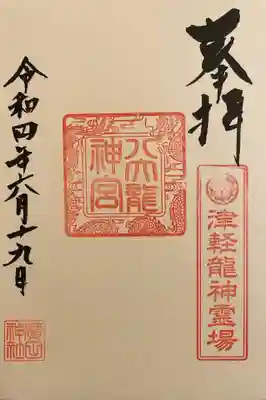 奉拝
津軽龍神霊場
八大龍
神宮
令和四年六月十九日
神社